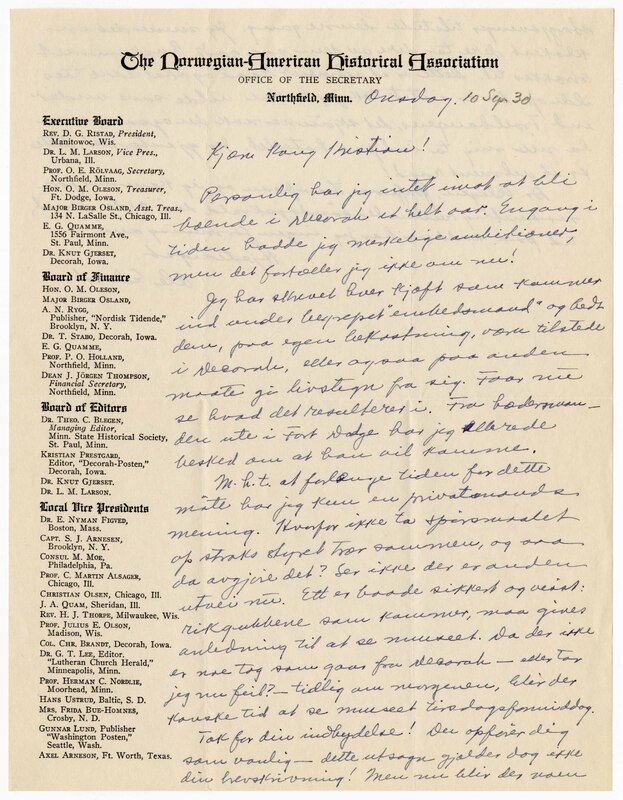 The Norwegian-American Historical Association
OFFICE OF THE SECRETARY
Northfield, Minn. Onsdag, 10 Sep 30
Executive Board
REV. D. G. RISTAD, President,
Manitowoc, Wis.
DR. L. M. LARSON, Vice Pres.,
Urbana, Ill.
PROF. O. E. RÖLVAAG, Secretary,
Northfield, Minn.
HON. O. M. OLESON, Treasurer,
Ft. Dodge, Iowa.
MAJOR BIRGER OSLAND, Asst. Treas.,
134 N. LaSalle St., Chicago, Ill.
E. G. QUAMME,
1556 Fairmont Ave.,
St. Paul, Minn.
DR. KNUT GJERSET,
Decorah, Iowa.
Board of Finance
HON. O. M. OLESON,
MAJOR BIRGER OSLAND,
A. N. RYGG,
Publisher, "Nordisk Tidende,"
Brooklyn, N. Y.
DR. T. STABO, Decorah, Iowa.
E. G. QUAMME,
PROF. P. O. HOLLAND,
Northfield, Minn.
DEAN J. JÖRGEN THOMPSON,
Financial Secretary,
Northfield, Minn.
Board of Editors
DR. THEO. C. BLEGEN,
Managing Editor,
Minn. State Historical Society,
St. Paul, Minn.
KRISTIAN PRESTGARD,
Editor, "Decorah-Posten,"
Decorah, Iowa.
DR. KNUT GJERSET.
DR. L. M. LARSON.
Local Vice Presidents
DR. E. NYMAN FIGVED,
Boston, Mass.
CAPT. S. J. ARNESEN,
Brooklyn, N. Y.
CONSUL M. MOE,
Philadelphia, Pa.
PROF. C. MARTIN ALSAGER,
Chicago, Ill.
CHRISTIAN OLSEN, Chicago, Ill.
J. A. QUAM, Sheridan, Ill.
REV. H. J. THORPE, Milwaukee, Wis.
PROF. JULIUS E. OLSON,
Madison, Wis.
COL. CHR. BRANDT, Decorah, Iowa.
DR. G. T. LEE, Editor,
"Lutheran Church Herald,"
Minneapolis, Minn.
PROF. HERMAN C. NORDLIE,
Moorhead, Minn.
HANS USTRUD, Baltic, S. D.
MRS. FRIDA BUE-HOMNES,
Crosby, N. D.
GUNNAR LUND, Publisher
"Washington Posten,"
Seattle, Wash.
AXEL ARNESON, Ft. Worth, Texas.
Kjære Kong Kristian!
Personlig har jeg intet imot at bli
boende i Decorah et helt aar. Engang i
tiden hadde jeg merkelige ambitioner,
men det fortæller jeg ikke om nu!
Jeg har skrevet hver kjæft som kommer
ind under begrepet "embedsmand" og bedt
dem, paa egen bekostning, være tilstede
i Decorah, eller ogsaa paa anden
maate gi livstegn fra sig. Faar nu
se hvad det resulterer i. Fra
den ute i Fort Dodge har jeg allerede
besked om at han vil komme.
M.h.t. at forlænge tiden for dette
møte har jeg kun en privatmands
mening. Hvorfor ikke ta spørsmaalet
op straks styret trær sammen, og saa
da avgjøre det? Ser ikke der er anden
utvei nu. Ett er baade sikkert og visst:
rikgubbene som kommer, maa gives
anledning til at se museet. Da der ikke
er noe tog som gaar fra Decorah — eller tar
jeg nu feil? — tidlig om morgenen, blir der
kanske tid at se museet tirsdagsformiddag.
Tak for din indbydelse! Du opfører dig
som vanlig — dette utsagn gjælder dog ikke
din brevskrivning! Men nu blir der noen